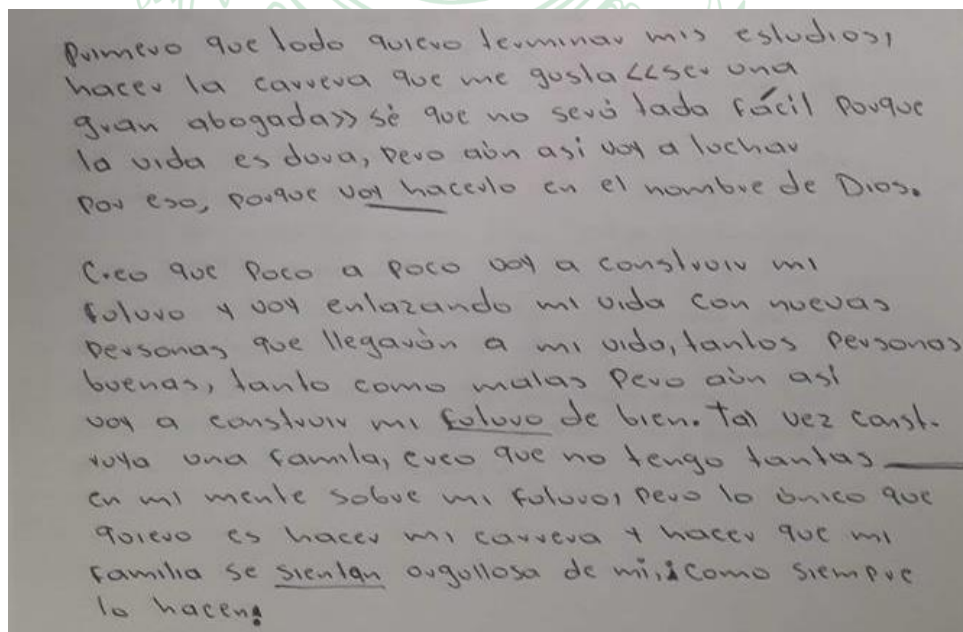 Primero que todo quiero terminar mis estudios,
hacer la carrera que me gusta <<ser una
gran abogada>> sé que no será tada fácil porque
la vida es dura, pero aún así voy a luchar
por eso, porque voy hacerlo en el nombre de Dios.
Creo que poco a poco voy a construir mi
futuro y voy enlazando mi vida con nuevas
personas que llegarán a mi vida, tantos personas
buenas, tanto como malas pero aún así
voy a construir mi futuro de bien. Tal vez const-
ruya una famila, creo que no tengo tantas
en mi mente sobre mi futuro, pero lo único que
quiero es hacer mi carrera y hacer que mi
familia se sientan orgullosa de mi, ¡como siempre
lo hacen!